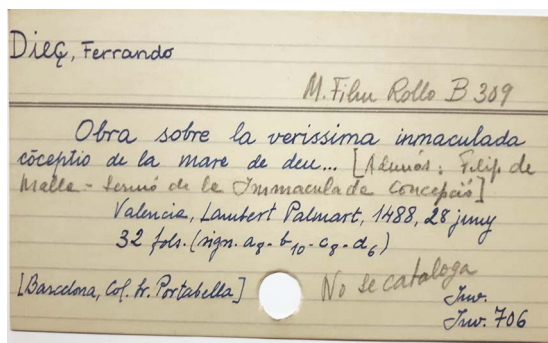 Dieç, Ferrando
M. Film Rollo B 309
Obra sobre la verissima inmaculada
cōceptio de la mare de deu... [Además: Felip de
Malla - Sermó de la Immaculada Concepció]
Valencia, Lambert Palmart, 1488, 28 juny
32 fols. (sign. a8-b10-c8-d6)
[Barcelona, Col. Sr. Portabella]
No se cataloga
Inv.
Inv. 706